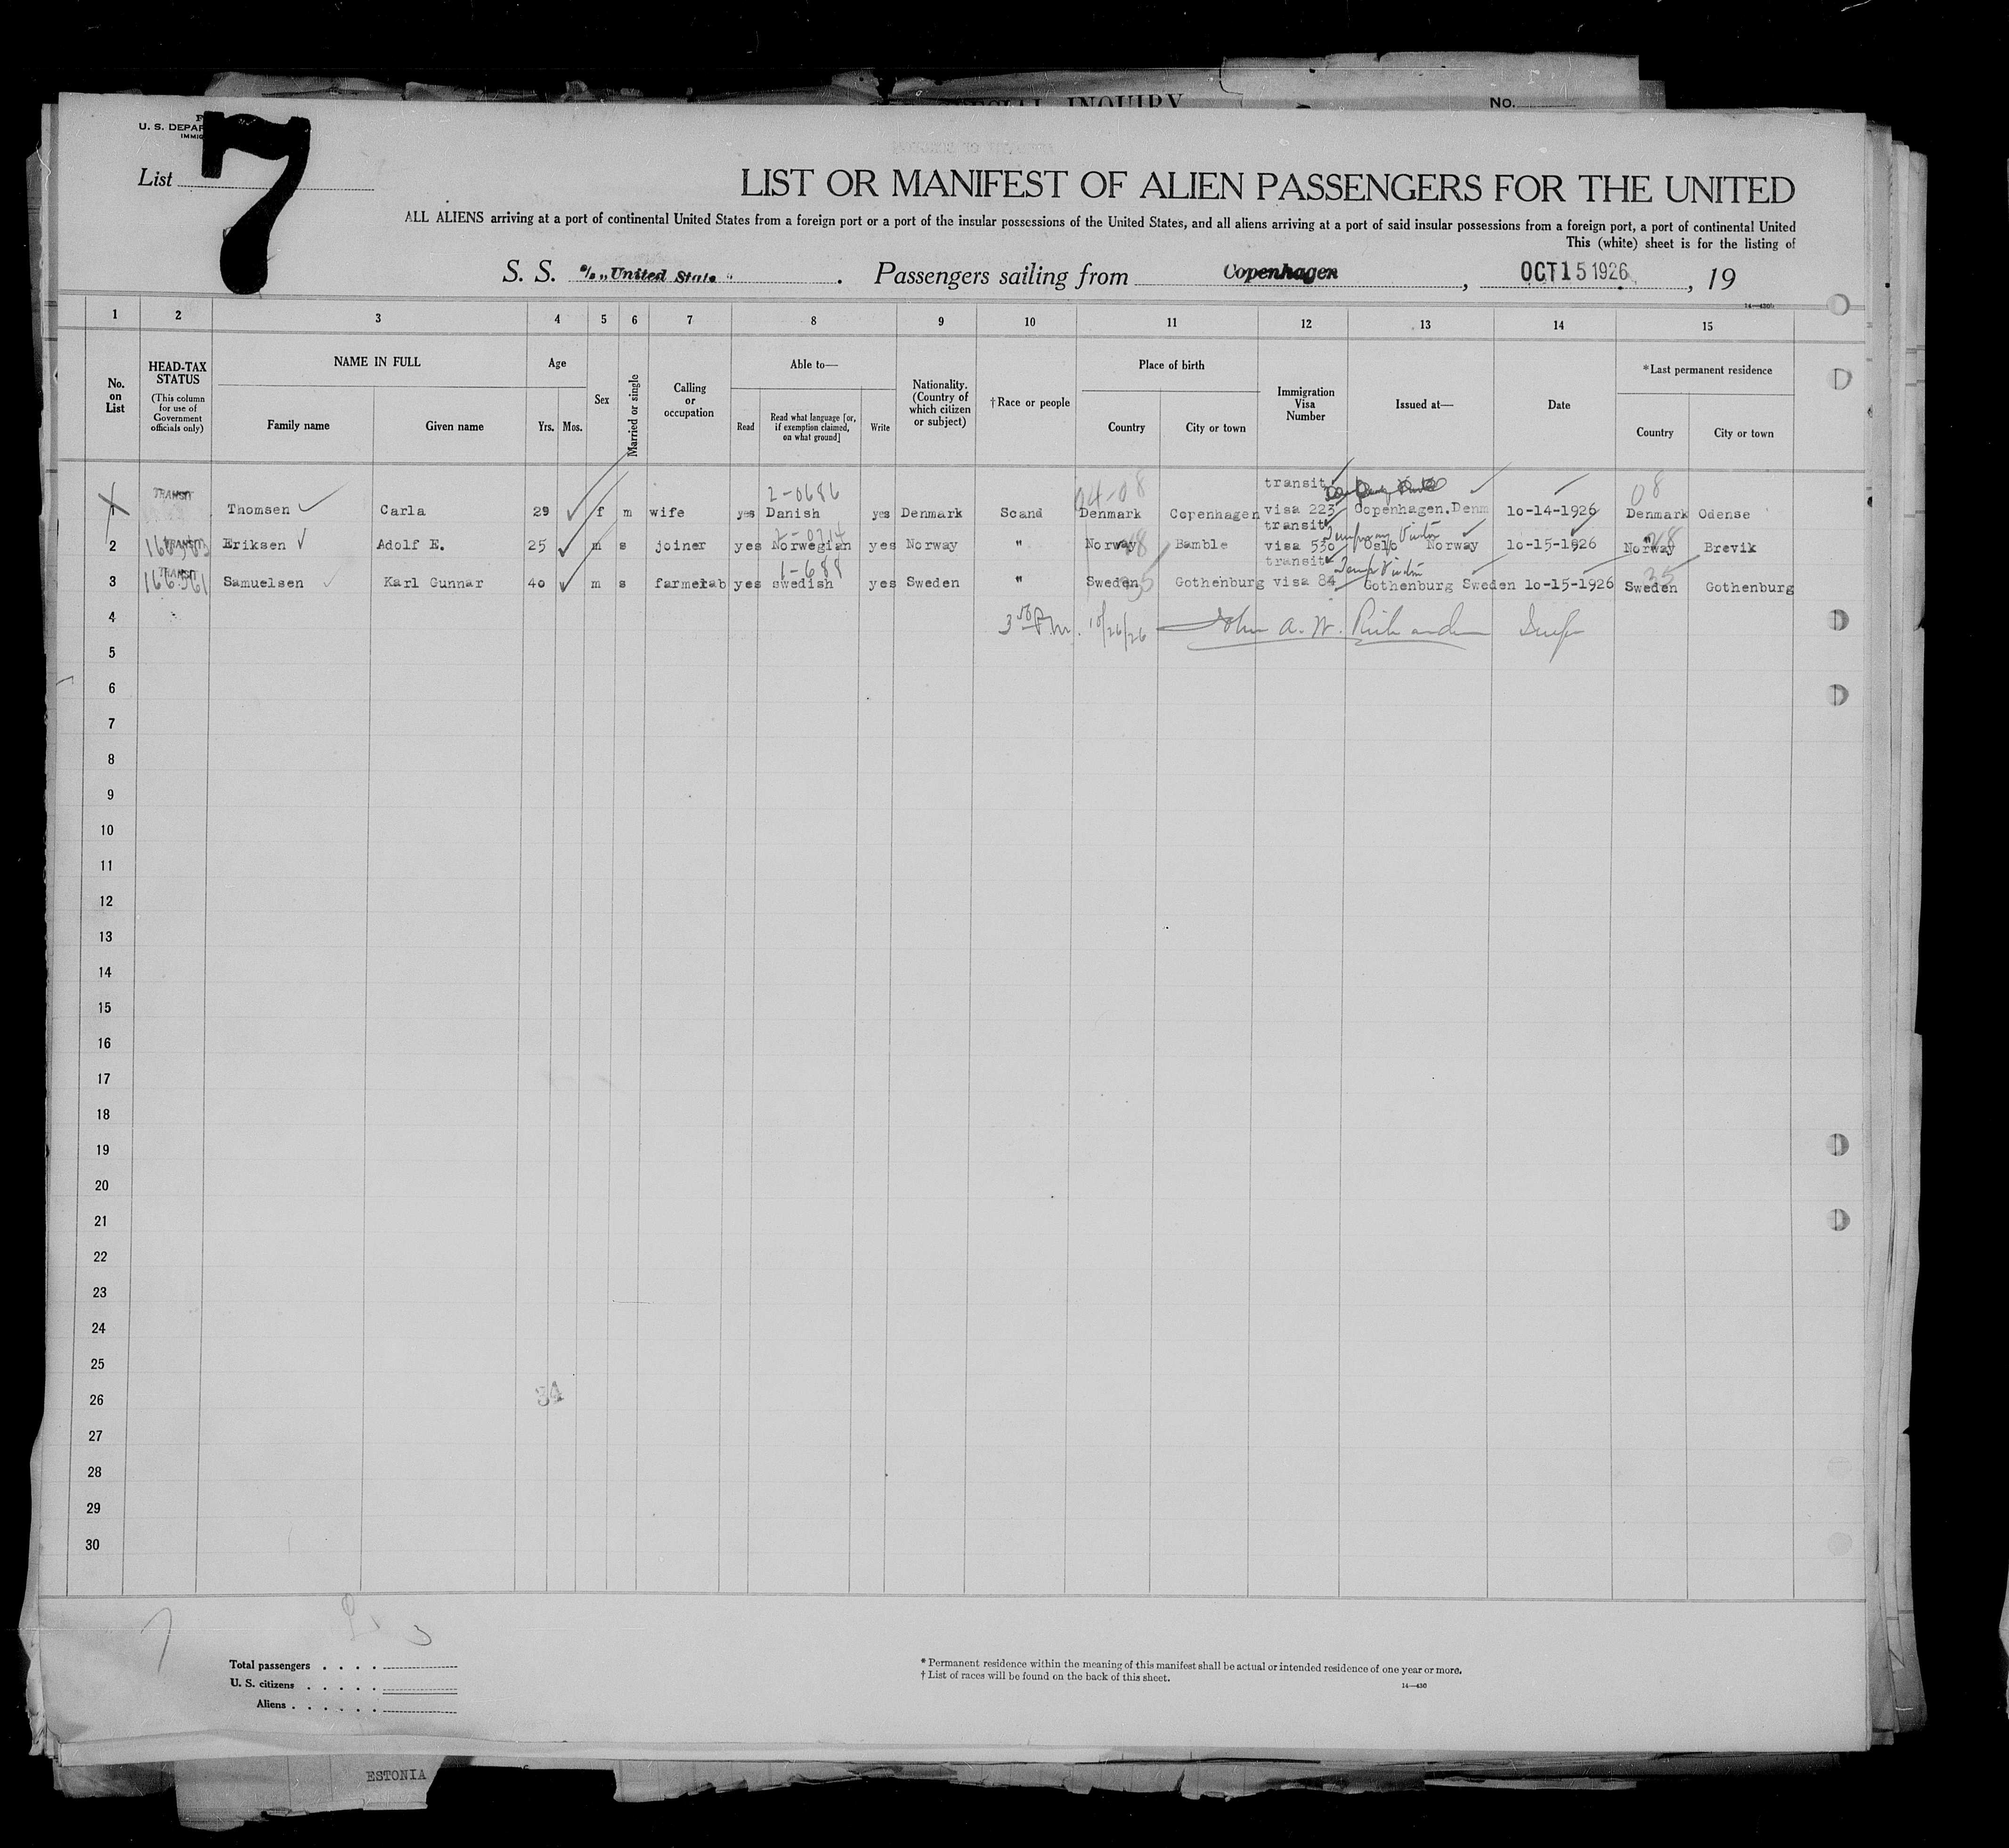 SPECIAL INQUIRY
No.
U. S. DEPAR
IMMIG
7
List
LIST OR MANIFEST OF ALIEN PASSENGERS FOR THE UNITED
ALL ALIENS arriving at a port of continental United States from a foreign port or a port of the insular possessions of the United States, and all aliens arriving at a port of said insular possessions from a foreign port, a port of continental United
This (white) sheet is for the listing of
S. S. s/s „United State" . Passengers sailing from Copenhagen , OCT 15 1926 , 19
1 2 3 4 5 6 7 8 9 10 11 12 13 14 15
No. on List
HEAD-TAX STATUS
(This column for use of Government officials only)
NAME IN FULL
Family name Given name
Age
Yrs. Mos.
Sex
Married or single
Calling or occupation
Able to—
Read
Read what language [or, if exemption claimed, on what ground]
Write
Nationality. (Country of which citizen or subject)
† Race or people
Place of birth
Country City or town
Immigration Visa Number
Issued at—
Date
* Last permanent residence
Country City or town
TRANSIT 2-0686 04-08 transit 08
1 Thomsen Carla 29 f m wife yes Danish yes Denmark Scand Denmark Copenhagen visa 223 Copenhagen.Denm 10-14-1926 Denmark Odense
TRANSIT transit
2 Eriksen Adolf E. 25 m s joiner yes Norwegian yes Norway " Norway Bamble visa 530 Oslo Norway 10-15-1926 Norway Brevik
TRANSIT 1-688 transit
3 Samuelsen Karl Gunnar 40 m s farmelab yes swedish yes Sweden " Sweden Gothenburg visa 84 Gothenburg Sweden 10-15-1926 Sweden Gothenburg
4 10/26/26 John A. W.
5
6
7
8
9
10
11
12
13
14
15
16
17
18
19
20
21
22
23
24
25
26 34
27
28
29
30
Total passengers . . . .
U. S. citizens . . . . .
Aliens . . . . . .
* Permanent residence within the meaning of this manifest shall be actual or intended residence of one year or more.
† List of races will be found on the back of this sheet.
14—430
ESTONIA